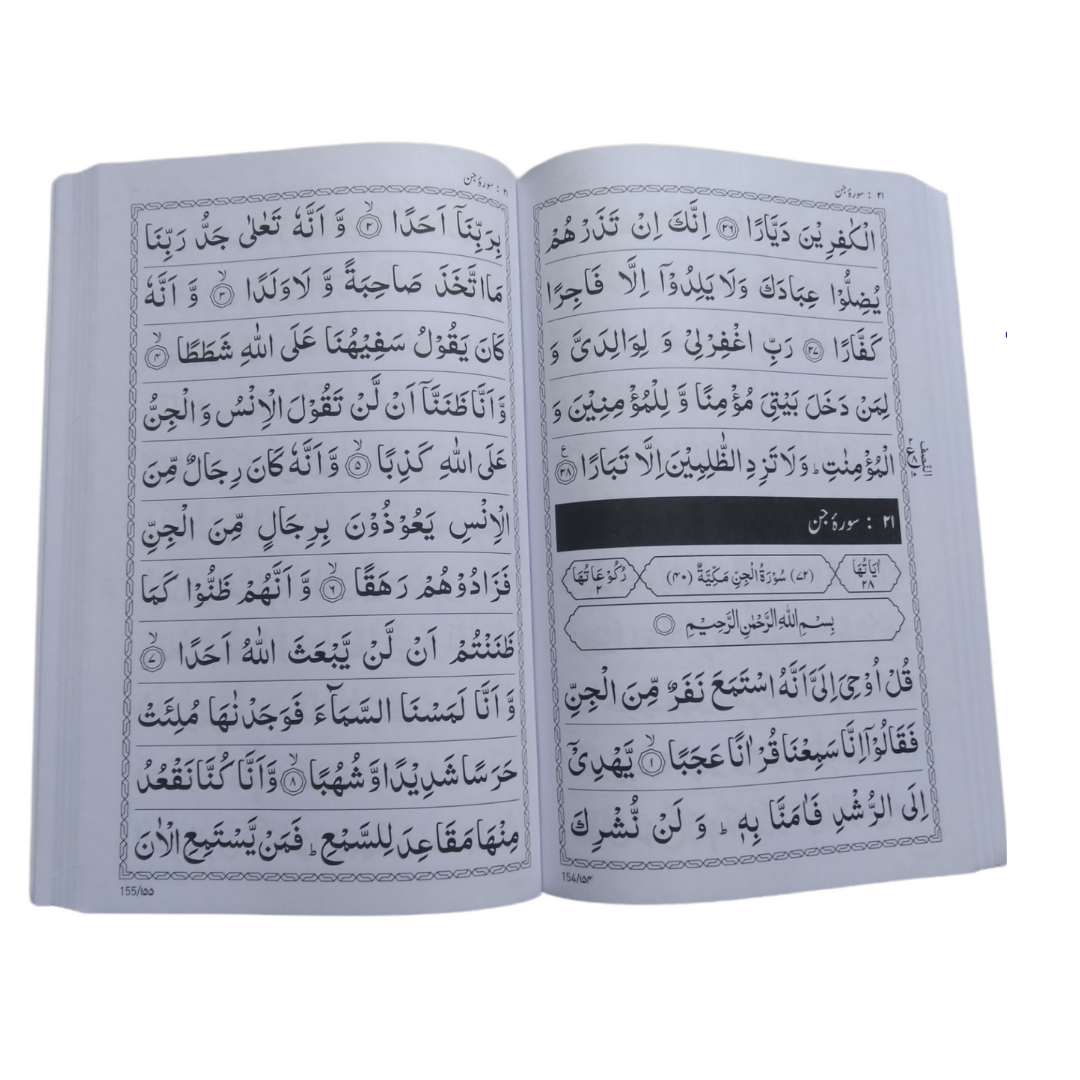 ۲۱ : سورۂ جن
الْكٰفِرِيْنَ دَيَّارًا ۲۶ اِنَّكَ اِنْ تَذَرْهُمْ
يُضِلُّوْا عِبَادَكَ وَلَا يَلِدُوْٓا اِلَّا فَاجِرًا
كَفَّارًا ۲۷ رَبِّ اغْفِرْلِىْ وَ لِوَالِدَىَّ وَ
لِمَنْ دَخَلَ بَيْتِىَ مُؤْمِنًا وَّ لِلْمُؤْمِنِيْنَ وَ
الْمُؤْمِنٰتِ ؕ وَلَا تَزِدِ الظّٰلِمِيْنَ اِلَّا تَبَارًا ۲۸ ع
۲۱ : سورۂ جن
اٰيَاتُهَا ۲۸ (۷۲) سُوْرَةُ الْجِنِّ مَكِّيَّةٌ (۴۰) رُكُوْعَاتُهَا ۲
بِسْمِ اللّٰهِ الرَّحْمٰنِ الرَّحِيْمِ
قُلْ اُوْحِىَ اِلَىَّ اَنَّهُ اسْتَمَعَ نَفَرٌ مِّنَ الْجِنِّ
فَقَالُوْٓا اِنَّا سَمِعْنَا قُرْاٰنًا عَجَبًا ۙ۱ يَّهْدِىْٓ
اِلَى الرُّشْدِ فَاٰمَنَّا بِهٖ ؕ وَ لَنْ نُّشْرِكَ
154/۱۵۴
۲۱ : سورۂ جن
بِرَبِّنَآ اَحَدًا ۙ۲ وَّ اَنَّهٗ تَعٰلٰى جَدُّ رَبِّنَا
مَا اتَّخَذَ صَاحِبَةً وَّ لَا وَلَدًا ۙ۳ وَّ اَنَّهٗ
كَانَ يَقُوْلُ سَفِيْهُنَا عَلَى اللّٰهِ شَطَطًا ۙ۴
وَّ اَنَّا ظَنَنَّآ اَنْ لَّنْ تَقُوْلَ الْاِنْسُ وَ الْجِنُّ
عَلَى اللّٰهِ كَذِبًا ۙ۵ وَّ اَنَّهٗ كَانَ رِجَالٌ مِّنَ
الْاِنْسِ يَعُوْذُوْنَ بِرِجَالٍ مِّنَ الْجِنِّ
فَزَادُوْهُمْ رَهَقًا ۙ۶ وَّ اَنَّهُمْ ظَنُّوْا كَمَا
ظَنَنْتُمْ اَنْ لَّنْ يَّبْعَثَ اللّٰهُ اَحَدًا ۙ۷
وَّ اَنَّا لَمَسْنَا السَّمَآءَ فَوَجَدْنٰهَا مُلِئَتْ
حَرَسًا شَدِيْدًا وَّ شُهُبًا ۙ۸ وَّ اَنَّا كُنَّا نَقْعُدُ
مِنْهَا مَقَاعِدَ لِلسَّمْعِ ؕ فَمَنْ يَّسْتَمِعِ الْاٰنَ
155/۱۵۵